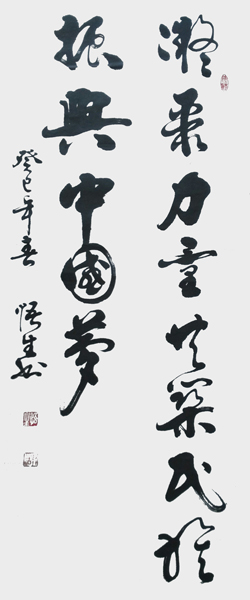 凝聚力量共築民族
振興中國夢
癸巳年春 悟生书